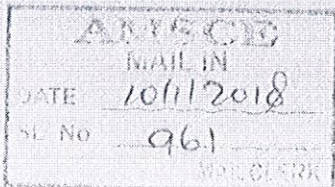 AMSCE
MAIL IN
DATE 10/11/2018
SL No 961
MAIL CLERK